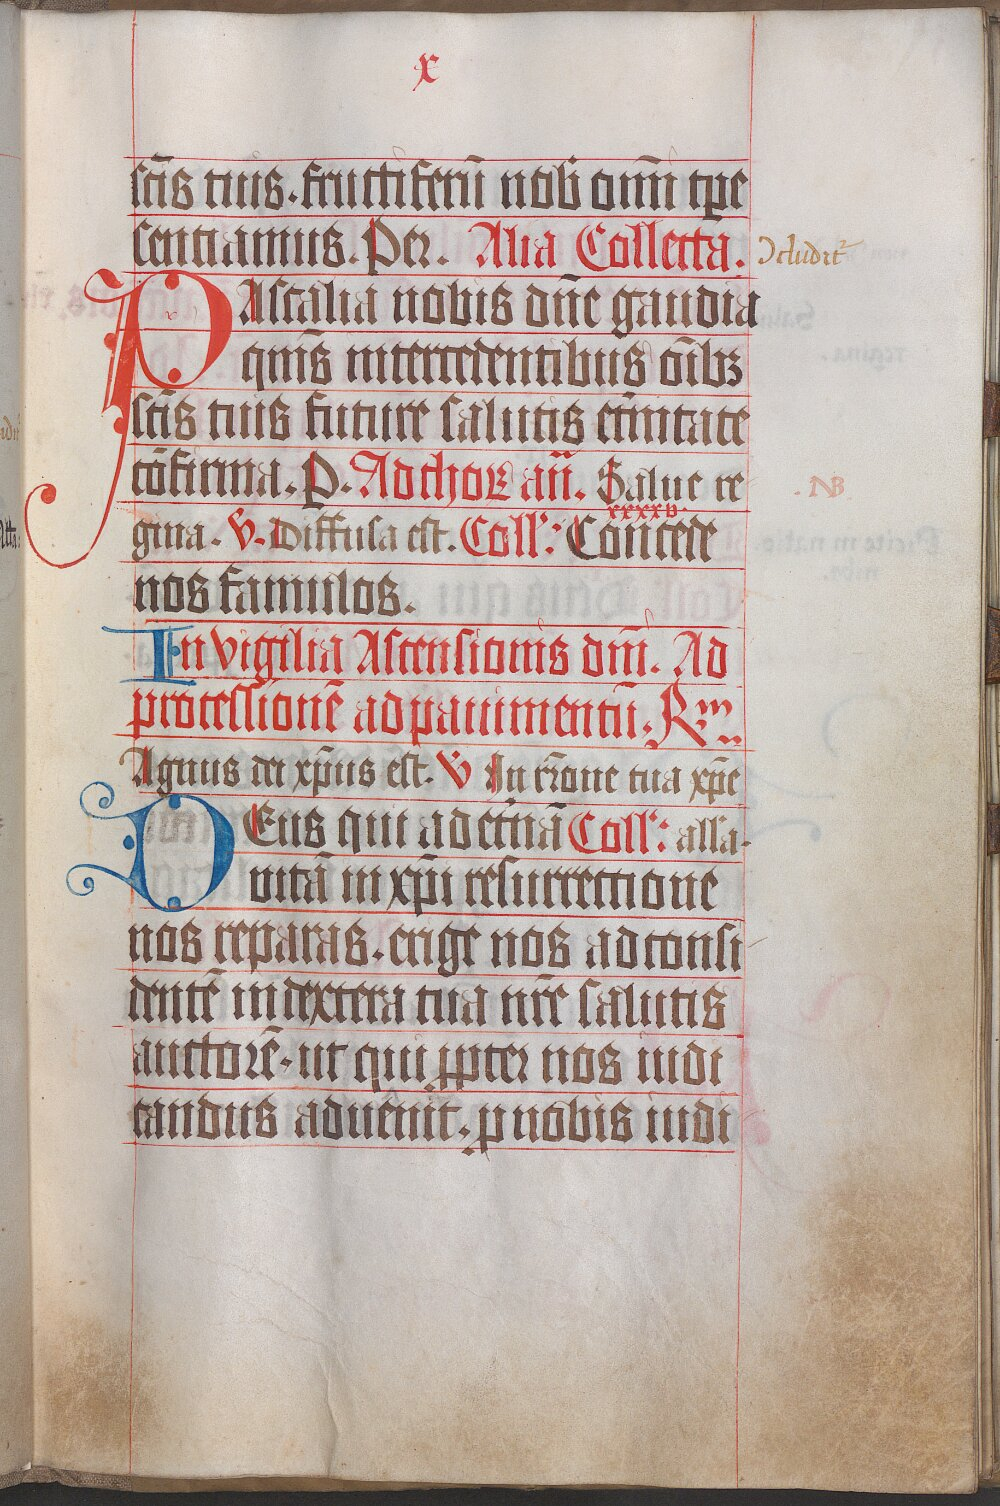 x
sctis tuis. fructiferū nob om̄i tpe
sentiamus. Per. Alia Collecta.
PAscalia nobis dn̄e gaudia
qm̄s intercedentibus oīb3
sctis tuis future salutis et̄nitate
cōfirma. P. Ad choꝝ an̄. Salue re
xxxxv.
gina. V. Diffusa est. Coll': Concede
nos famulos.
In vigilia Ascensionis dn̄i. Ad
processionē ad pauimentū. Rm̄
Agnus dei xp̄us est. V In r̄rone tua xp̄e
DEus qui ad et̄nā Coll': alla.
uitā in xp̄i resurrectione
nos reparas. erige nos ad consi
dentē in dextera tua nr̄e salutis
auctorē. ut qui ꝓpter nos iudi
candus aduenit. p nobis iudi
NB